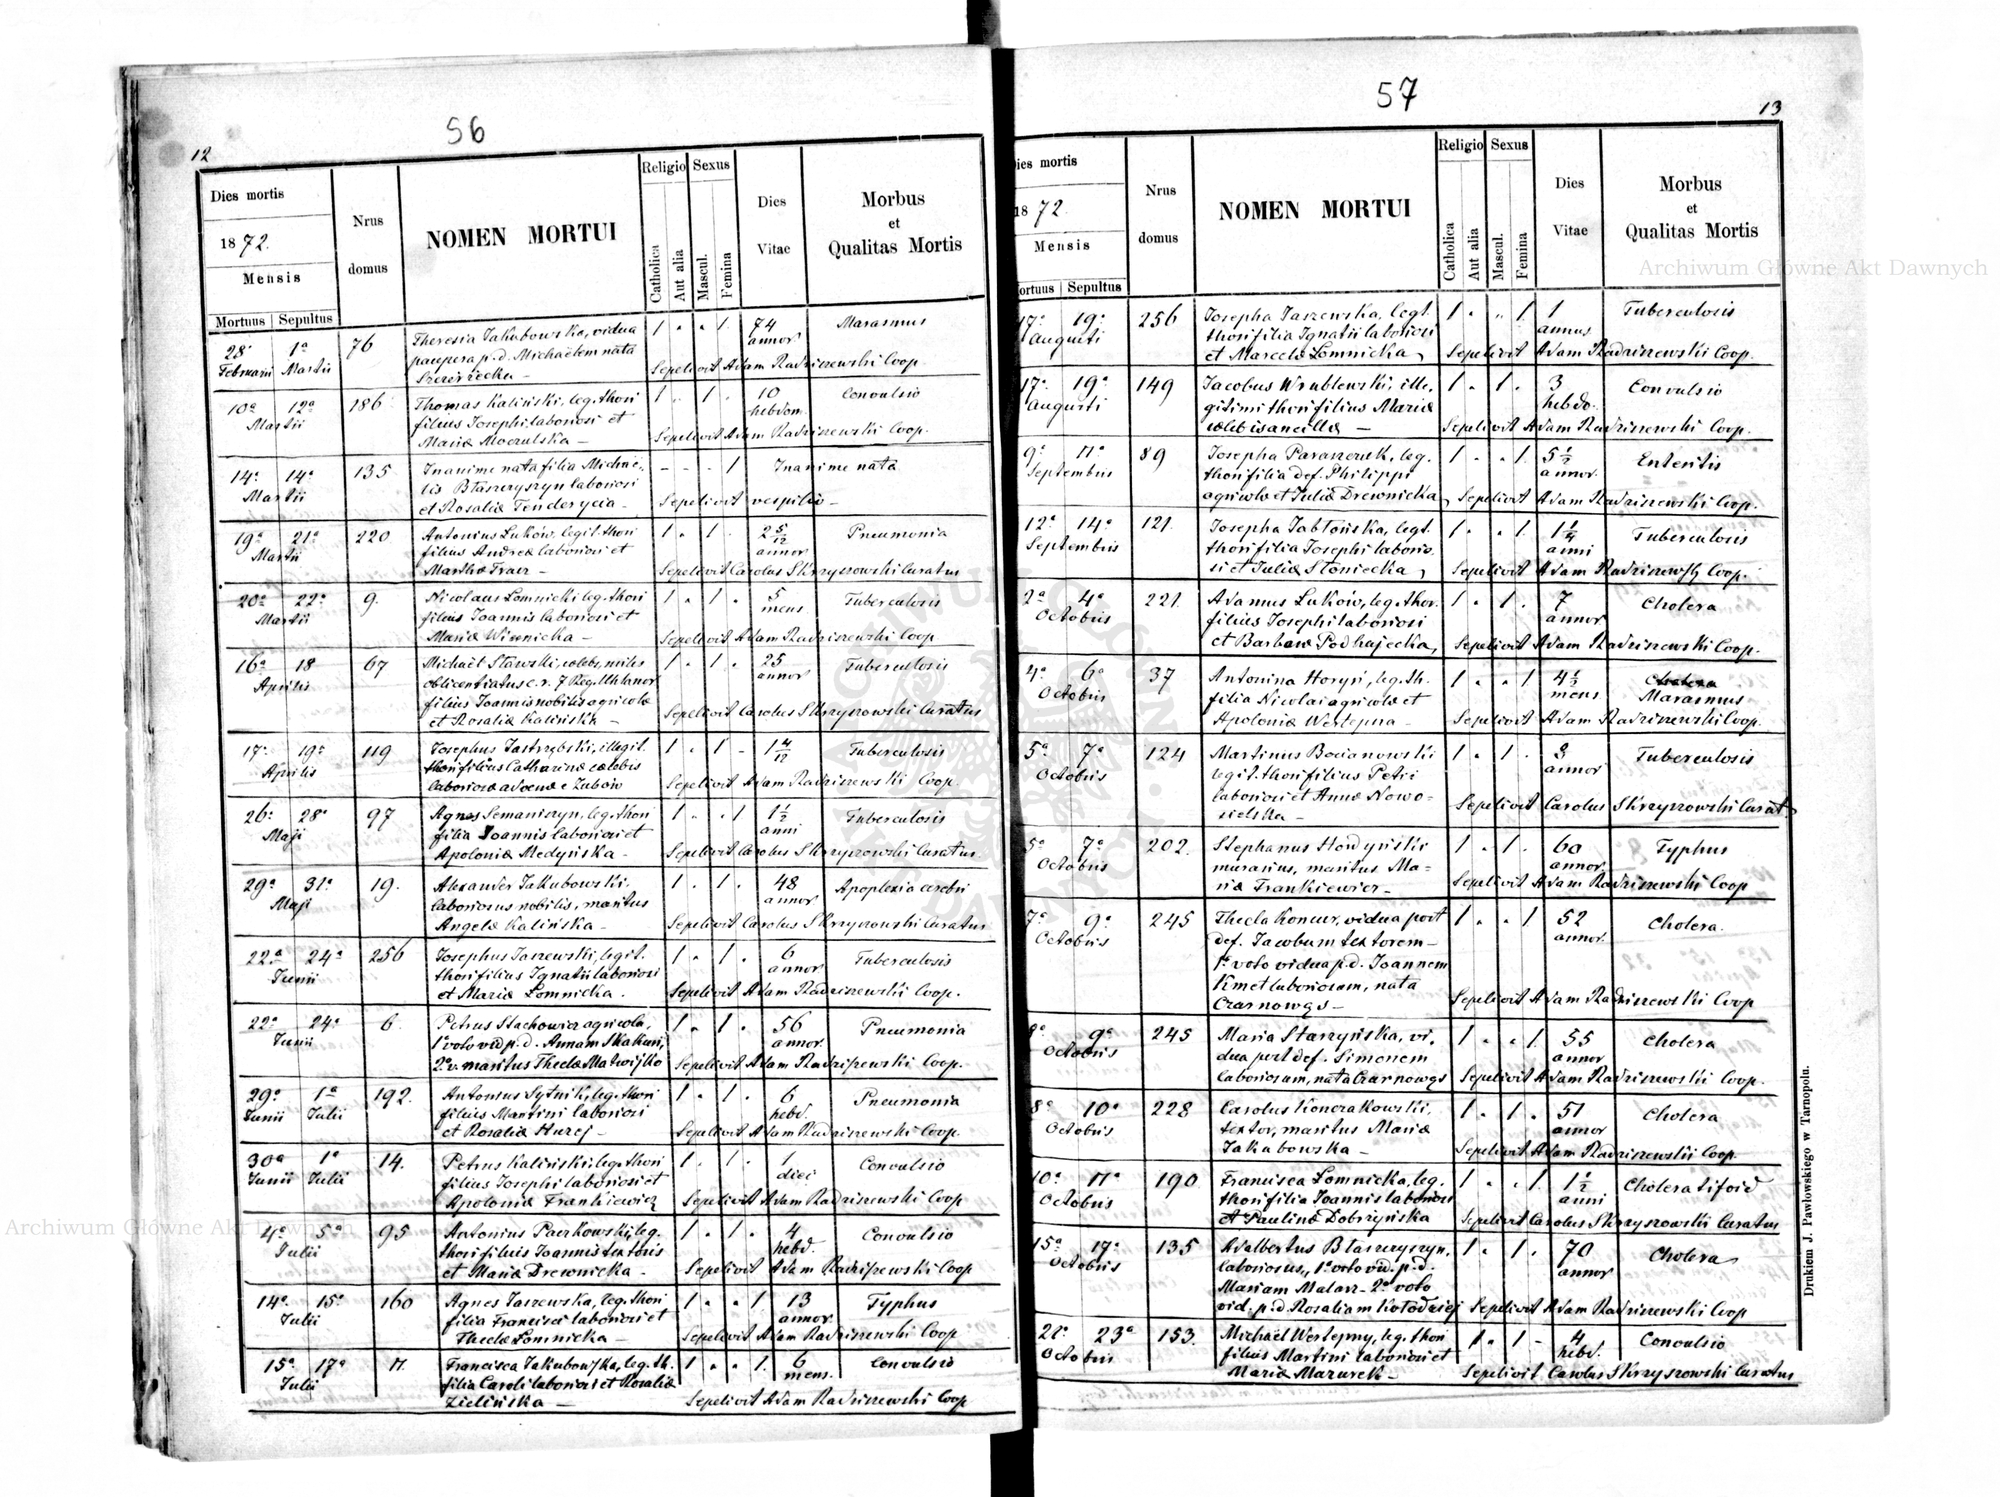 56
12
Dies mortis
1872.
Mensis
Mortuus Sepultus
Nrus domus
NOMEN MORTUI
Religio
Catholica
Aut alia
Sexus
Mascul.
Femina
Dies Vitae
Morbus
et
Qualitas Mortis
28a 1a 76 Theresia Jakubowska, vidua 1 . . 1 74 Marasmus
Februarii Martii paupera p.d. Michaelem nata annor
Sepelivit Adam Radziszewski Coop
10a 12a 186 Thomas Kaliński, leg. thori 1 . 1 . 10 Convulsio
Martii filius Josephi, laboriosi et hebdom.
Mariæ Moczulska – Sepelivit Adam Radziszewski Coop.
14a 14a 135 Inanime nata filia Michae- – – – 1 Inanime nata
Martii lis Błaszczyszyn laboriosi
et Rosaliæ Fenderycia – Sepelivit vespilio –
19a 21a 220 Antonius Łuków, legit. thori 1 . 1 . 2 5/12 Pneumonia
Martii filius Andreæ laboriosi et annor
Marthæ Tracz – Sepelivit Carolus Skrzyszowski Curatus
20a 22a 9. Nicolaus Łomnicki leg. thori 1 . 1 . 5 Tuberculosis
Martii filius Joannis laboriosi et mens.
Mariæ Winnicka – Sepelivit Adam Radziszewski Coop
16a 18 67 Michael Sławski, cælebs, miles 1 . 1 . 25 Tuberculosis
Aprilis oblicentiatus c. r. 7 Reg. Uhlanor annor
filius Joannis nobilis agricolæ
et Rosaliæ Kalińska – Sepelivit Carolus Skrzyszowski Curatus
17a 19a 119 Josephus Jastrzębski, illegit. 1 . 1 – 1 4/12 Tuberculosis
Aprilis thori filius Catharinæ cælebis
laboriosæ advenæ e Zubów Sepelivit Adam Radziszewski Coop.
26a 28a 97 Agnes Semaniszyn, leg. thori 1 . . 1 1 1/2 Tuberculosis
Maji filia Joannis laboriosi et anni
Apoloniæ Medyńska – Sepelivit Carolus Skrzyszowski Curatus
29a 31a 19. Alexander Jakubowski, 1 . 1 . 48 Apoplexia cerebri
Maji laboriosus nobilis, maritus annor
Angelæ Kalińska – Sepelivit Carolus Skrzyszowski Curatus
22a 24a 256 Josephus Jaszewski, legit. 1 . 1 . 6 Tuberculosis
Junii thori filius Ignatii laboriosi annor
et Mariæ Łomnicka. Sepelivit Adam Radziszewski Coop.
22a 24a 6 Petrus Stachowicz agricola, 1 . 1 . 56 Pneumonia
Junii 1o voto vid p.d. Annam Skakun, annor.
2o v. maritus Theclæ Matwijko Sepelivit Adam Radziszewski Coop.
29a 1a 192. Antonius Sytnik, leg. thori 1 . 1 . 6 Pneumonia
Junii Julii filius Martini laboriosi hebd.
et Rosaliæ Hurej – Sepelivit Adam Radziszewski Coop.
30a 1a 14. Petrus Kaliński, leg. thori 1 . 1 . 1 Convulsio
Junii Julii filius Josephi laboriosi et diei
Apoloniæ Frankiewicz Sepelivit Adam Radziszewski Coop
4a 5a 95 Antonius Paczkowski, leg. 1 . 1 . 4 Convulsio
Julii thori filius Joannis textoris hebd.
et Mariæ Drewnicka – Sepelivit Adam Radziszewski Coop
14a 15a 160 Agnes Jaszewska, leg. thori 1 . . 1 13 Typhus
Julii filia Francisci laboriosi et annor
Theclæ Łomnicka – Sepelivit Adam Radziszewski Coop
15a 17a Francisca Jakubowska, leg. th. 1 . . 1. 6 Convulsio
Julii filia Caroli laboriosi et Rosaliæ mens.
Zielińska – Sepelivit Adam Radziszewski Coop
57
13
Dies mortis
1872.
Mensis
Mortuus Sepultus
Nrus domus
NOMEN MORTUI
Religio
Catholica
Aut alia
Sexus
Mascul.
Femina
Dies Vitae
Morbus
et
Qualitas Mortis
17a 19a 256 Josepha Jaszewska, legt. 1 . . 1 1 Tuberculosis
Augusti thori filia Ignatii laboriosi annus
et Marcelæ Łomnicka, Sepelivit Adam Radziszewski Coop.
17a 19a 149 Jacobus Wrublewski, ille- 1 . 1 . 3 Convulsio
Augusti gitimi thori filius Mariæ hebdo.
cælebis ancillæ – Sepelivit Adam Radziszewski Coop.
9a 11a 89 Josepha Paraszczuk, leg. 1 . . 1 5 1/2 Enteritis
Septembris thori filia def. Philippi annor
agricolæ et Juliæ Drewnicka, Sepelivit Adam Radziszewski Coop.
12a 14a 121. Josepha Jabłońska, legt. 1 . . 1 1 1/4 Tuberculosis
Septembris thori filia Josephi laborio- anni
si et Juliæ Słoniecka, Sepelivit Adam Radziszewski Coop.
2a 4a 221. Adamus Łuków, leg. thor. 1 . 1 . 7 Cholera
Octobris filius Josephi laboriosi annor
et Barbaræ Podhajecka, Sepelivit Adam Radziszewski Coop.
4a 6a 37 Antonina Horyń, leg. th. 1 . . 1 4 1/2 Cholera
Octobris filia Nicolai agricolæ et mens Marasmus
Apoloniæ Wertepna – Sepelivit Adam Radziszewski Coop.
5a 7a 124 Martinus Bocianowski 1 . 1 . 3 Tuberculosis
Octobris legit. thori filius Petri annor
laboriosi et Annæ Nowo- Sepelivit Carolus Skrzyszowski Curat.
sielska –
5a 7a 202. Stephanus Hordyński 1 . 1 . 60 Typhus
Octobris murarius, maritus Ma- annor
riæ Frankiewicz – Sepelivit Adam Radziszewski Coop
7a 9a 245 Thecla Koncur, vidua post 1 . . 1 52 Cholera.
Octobris def. Jacobum textorem – annor.
1o voto vidua p.d. Joannem
Kmet laboriosum, nata
Czarnowąs – Sepelivit Adam Radziszewski Coop
8a 9a 245 Maria Starzyńska, vi- 1 . . 1 55 Cholera
Octobris dua post def. Simonem annor
laboriosum, nata Czarnowąs Sepelivit Adam Radziszewski Coop.
8a 10a 228 Carolus Konczakowski, 1 . 1 . 51 Cholera
Octobris textor, maritus Mariæ annor
Jakubowska – Sepelivit Adam Radziszewski Coop.
10a 11a 190 Francisca Łomnicka, leg. 1 . . 1. 1 1/2 Cholera tifoid
Octobris thori filia Joannis laboriosi anni
et Paulinæ Dobrzyńska Sepelivit Carolus Skrzyszowski Curatus
15a 17a 135 Adalbertus Błaszczyszyn, 1 . 1 . 70 Cholera
Octobris laboriosus, 1o voto vid. p.d. annor
Mariam Malarz – 2o voto
vid. p.d. Rosaliam Kołodziej Sepelivit Adam Radziszewski Coop
23a 153. Michael Wertepny, leg. thori 1 . 1 – 4 Convulsio
Octobris filius Martini laboriosi et hebd.
Mariæ Mazurek – Sepelivit Carolus Skrzyszowski Curatus
Drukiem J. Pawłowskiego w Tarnopolu.
Archiwum Główne Akt Dawnych
Archiwum Główne Akt Dawnych
ARCHIWUM GŁÓWNE AKT DAWNYCH